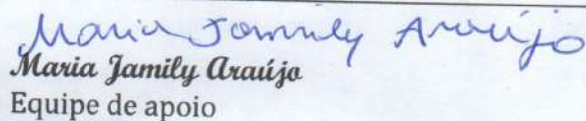 Maria Jamily Araújo
Maria Jamily Araújo
Equipe de apoio